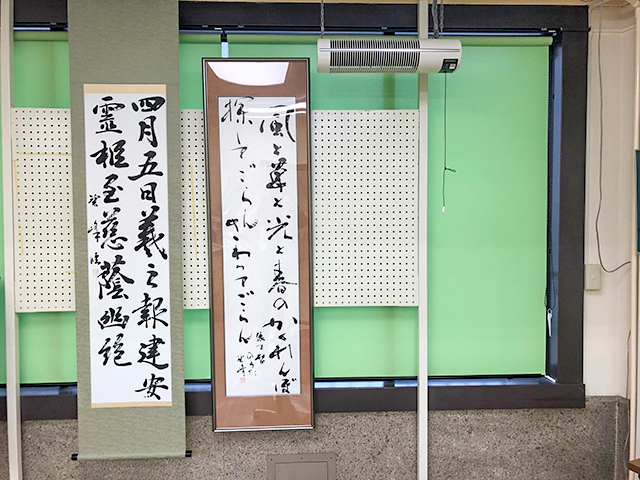 風と と光と春のかくれんぼ
探してごらん
さわってごらん
四月五日羲之報建安
靈柩至慈蔭幽絶